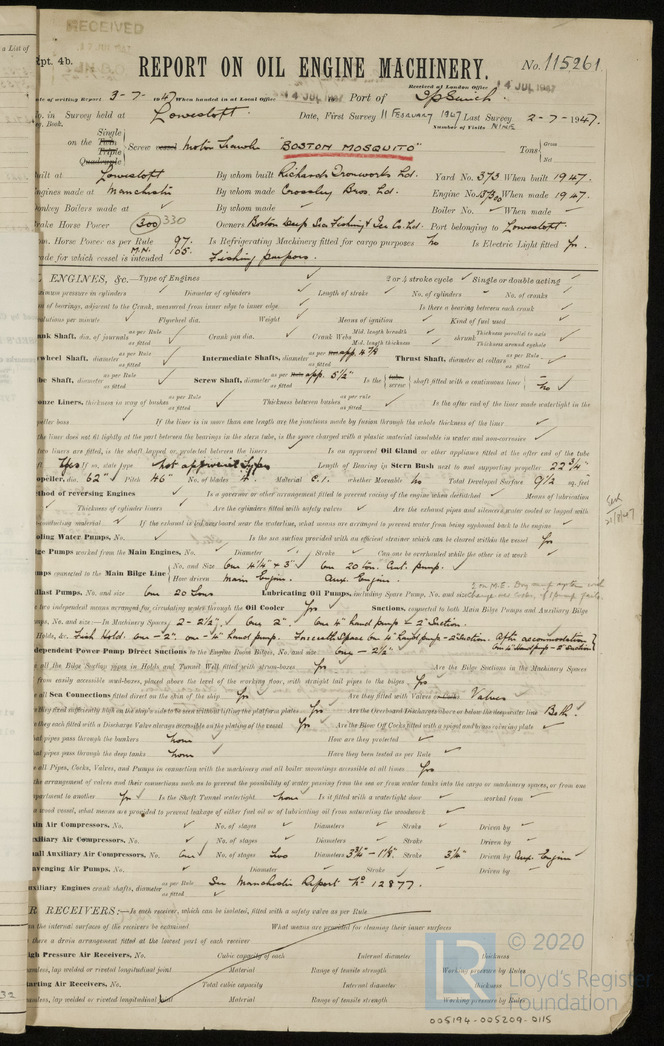 RECEIVED
a List of
Rpt. 4b.
REPORT ON OIL ENGINE MACHINERY.
No. 115261
Received at London Office 14 JUL 1947
Date of writing Report 3-7-1947 When handed in at Local Office 4 JUL 1947 Port of Ipswich.
No. in Survey held at Lowestoft. Date, First Survey 11 FEBRUARY 1947 Last Survey 2-7-1947.
Reg. Book. Number of Visits NINE
Single
on the Twin Triple Quadruple Screw vessel Motor Trawler "BOSTON MOSQUITO" Tons Gross Net
Built at Lowestoft By whom built Richards Ironworks Ld. Yard No. 373 When built 1947.
Engines made at Manchester By whom made Crossley Bros. Ld. Engine No. When made 1947.
Donkey Boilers made at By whom made Boiler No. When made
Brake Horse Power 300 330 Owners Boston Deep Sea Fishing & Ice Co. Ld. Port belonging to Lowestoft
Nom. Horse Power as per Rule 97. Is Refrigerating Machinery fitted for cargo purposes no Is Electric Light fitted yes.
M.N. 105.
Trade for which vessel is intended Fishing purposes.
ENGINES, &c.—Type of Engines 2 or 4 stroke cycle Single or double acting
Maximum pressure in cylinders Diameter of cylinders Length of stroke No. of cylinders No. of cranks
of bearings, adjacent to the Crank, measured from inner edge to inner edge Is there a bearing between each crank
Revolutions per minute Flywheel dia. Weight Means of ignition Kind of fuel used
Crank Shaft, dia. of journals as per Rule as fitted Crank pin dia. Crank Webs Mid. length breadth Mid. length thickness shrunk Thickness parallel to axis Thickness around eyehole
Flywheel Shaft, diameter as per Rule as fitted Intermediate Shafts, diameter as per app. 4 7/8 as fitted Thrust Shaft, diameter at collars as per Rule as fitted
Tube Shaft, diameter as per Rule as fitted Screw Shaft, diameter as per app. 5 1/2" as fitted Is the tube screw shaft fitted with a continuous liner no
Bronze Liners, thickness in way of bushes as per Rule as fitted Thickness between bushes as per rule as fitted Is the after end of the liner made watertight in the
propeller boss If the liner is in more than one length are the junctions made by fusion through the whole thickness of the liner
If the liner does not fit tightly at the part between the bearings in the stern tube, is the space charged with a plastic material insoluble in water and non-corrosive
If two liners are fitted, is the shaft lapped or protected between the liners Is an approved Oil Gland or other appliance fitted at the after end of the tube
shaft Yes If so, state type not approved type Length of Bearing in Stern Bush next to and supporting propeller 22 3/4"
Propeller, dia. 62" Pitch 46" No. of blades 4. Material C.I. whether Moveable no Total Developed Surface 9 1/2 sq. feet
Method of reversing Engines Is a governor or other arrangement fitted to prevent racing of the engine when declutched Means of lubrication
Thickness of cylinder liners Are the cylinders fitted with safety valves Are the exhaust pipes and silencers water cooled or lagged with
non-conducting material If the exhaust is led overboard near the waterline, what means are arranged to prevent water from being syphoned back to the engine
Cooling Water Pumps, No. Is the sea suction provided with an efficient strainer which can be cleared within the vessel yes
Bilge Pumps worked from the Main Engines, No. Diameter Stroke Can one be overhauled while the other is at work
Pumps connected to the Main Bilge Line No. and Size One 4 1/4" x 3" One 20 ton. Cent. pump.
How driven Main Engine. Aux. Engine.
Ballast Pumps, No. and size One 20 tons Lubricating Oil Pumps, including Spare Pump, No. and size
Are two independent means arranged for circulating water through the Oil Cooler yes Suctions, connected to both Main Bilge Pumps and Auxiliary Bilge
Pumps, No. and size:—In Machinery Spaces 2 - 2 1/2". One 2". One 4" hand pump & 2" Suction.
In Holds, &c. Fish Hold. One - 2". one - 4" hand pump. Forecastle Space one 4" hand pump - 2" Suction. After accommodation one 4" hand pump - 2" Suction
Independent Power Pump Direct Suctions to the Engine Room Bilges, No. and size One - 2 1/2"
Are all the Bilge Suction pipes in Holds and Tunnel Well fitted with strum-boxes yes Are the Bilge Suctions in the Machinery Spaces
led from easily accessible mud-boxes, placed above the level of the working floor, with straight tail pipes to the bilges yes
Are all Sea Connections fitted direct on the skin of the ship yes Are they fitted with Valves Valves
Are they fixed sufficiently high on the ship's side to be seen without lifting the platform plates yes Are the Overboard Discharges above or below the deep water line Both.
Are they each fitted with a Discharge Valve always accessible on the plating of the vessel yes Are the Blow Off Cocks fitted with a spigot and brass covering plate
What pipes pass through the bunkers none How are they protected
What pipes pass through the deep tanks none Have they been tested as per Rule
Are all Pipes, Cocks, Valves, and Pumps in connection with the machinery and all boiler mountings accessible at all times yes
Is the arrangement of valves and their connections such as to prevent the possibility of water passing from the sea or from water tanks into the cargo or machinery spaces, or from one
compartment to another yes Is the Shaft Tunnel watertight none Is it fitted with a watertight door worked from
If a wood vessel, what means are provided to prevent leakage of either fuel oil or of lubricating oil from saturating the woodwork
Main Air Compressors, No. No. of stages Diameters Stroke Driven by
Auxiliary Air Compressors, No. No. of stages Diameters Stroke Driven by
Small Auxiliary Air Compressors, No. One No. of stages Two Diameters 3 3/4" - 1 1/8". Stroke 3 1/4" Driven by Aux. Engine
Scavenging Air Pumps, No. Diameter Stroke Driven by
Auxiliary Engines crank shafts, diameter as per Rule as fitted See Manchester Report No 12877.
AIR RECEIVERS:—Is each receiver, which can be isolated, fitted with a safety valve as per Rule
Can the internal surfaces of the receivers be examined What means are provided for cleaning their inner surfaces
Is there a drain arrangement fitted at the lowest part of each receiver
High Pressure Air Receivers, No. Cubic capacity of each Internal diameter thickness
Seamless, lap welded or riveted longitudinal joint Material Range of tensile strength Working pressure by Rules
Starting Air Receivers, No. Total cubic capacity Internal diameter thickness
Seamless, lap welded or riveted longitudinal joint Material Range of tensile strength Working pressure by Rules
© 2020
LR
Lloyd's Register
Foundation
005194-005209-0115